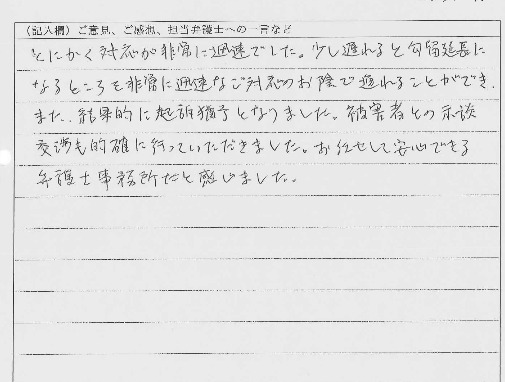 (記入欄) ご意見、ご感想、担当弁護士への一言など
とにかく対応が非常に迅速でした。少し遅れると勾留延長に
なるところを非常に迅速なご対応のお陰で逃れることができ、
また、結果的に起訴猶予となりました。被害者との示談
交渉も的確に行っていただきました。お任せして安心できる
弁護士事務所だと感じました。